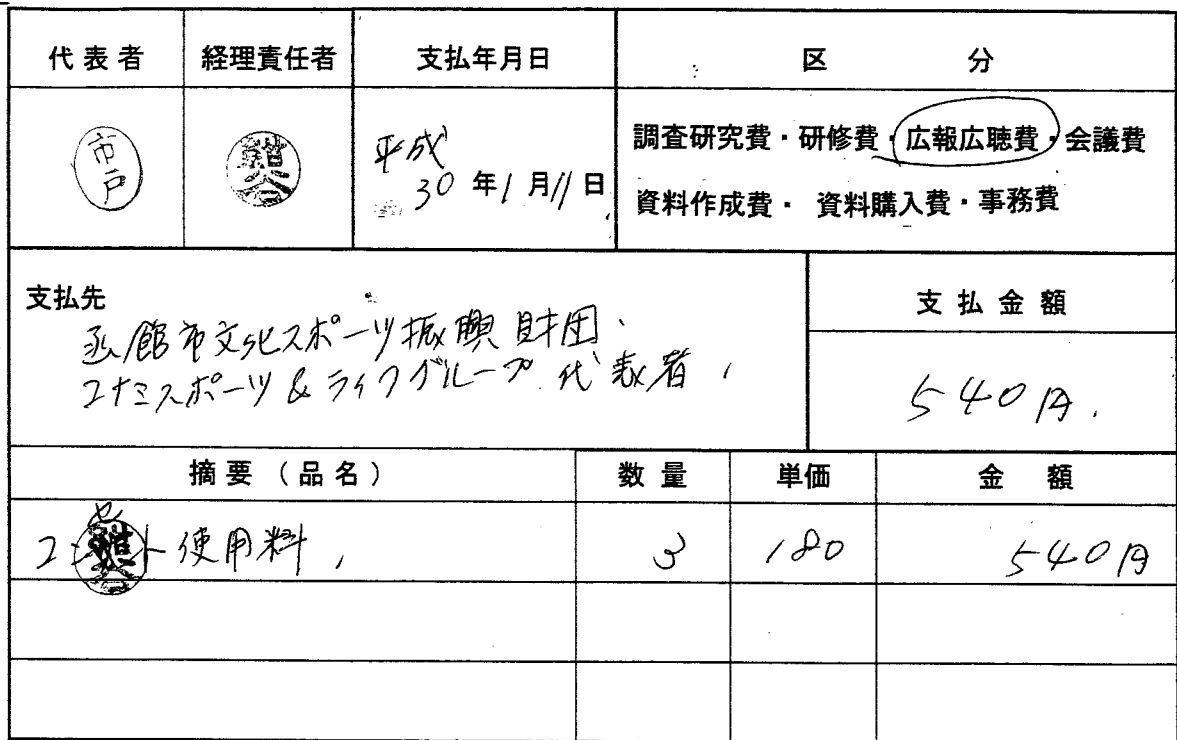 代表者 経理責任者 支払年月日 区 分
市戸 平成 30年1月11日
調査研究費・研修費・広報広聴費・会議費
資料作成費・ 資料購入費・事務費
支払先 支払金額
函館市文化スポーツ振興財団、
コナミスポーツ&ライフグループ 代表者
540円.
摘要(品名) 数量 単価 金 額
コンセント使用料 3 180 540円